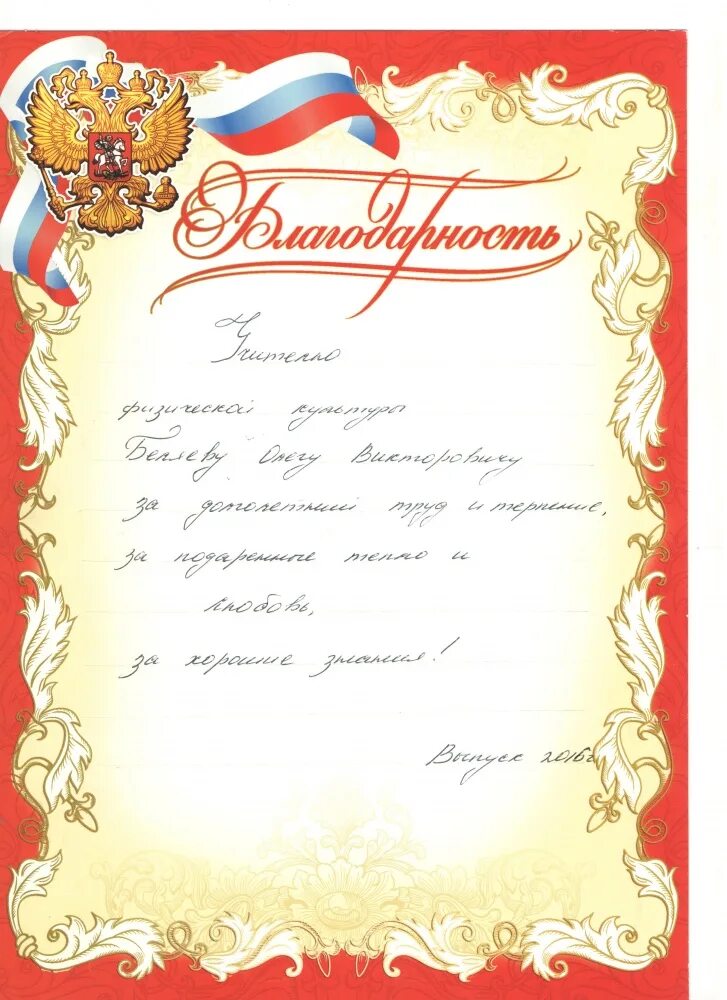 Благодарность
Учителю
физической культуры
Беляеву Олегу Викторовичу
за долголетний труд и терпение,
за подаренные тепло и
любовь,
за хорошие знания!
Выпуск 2016г